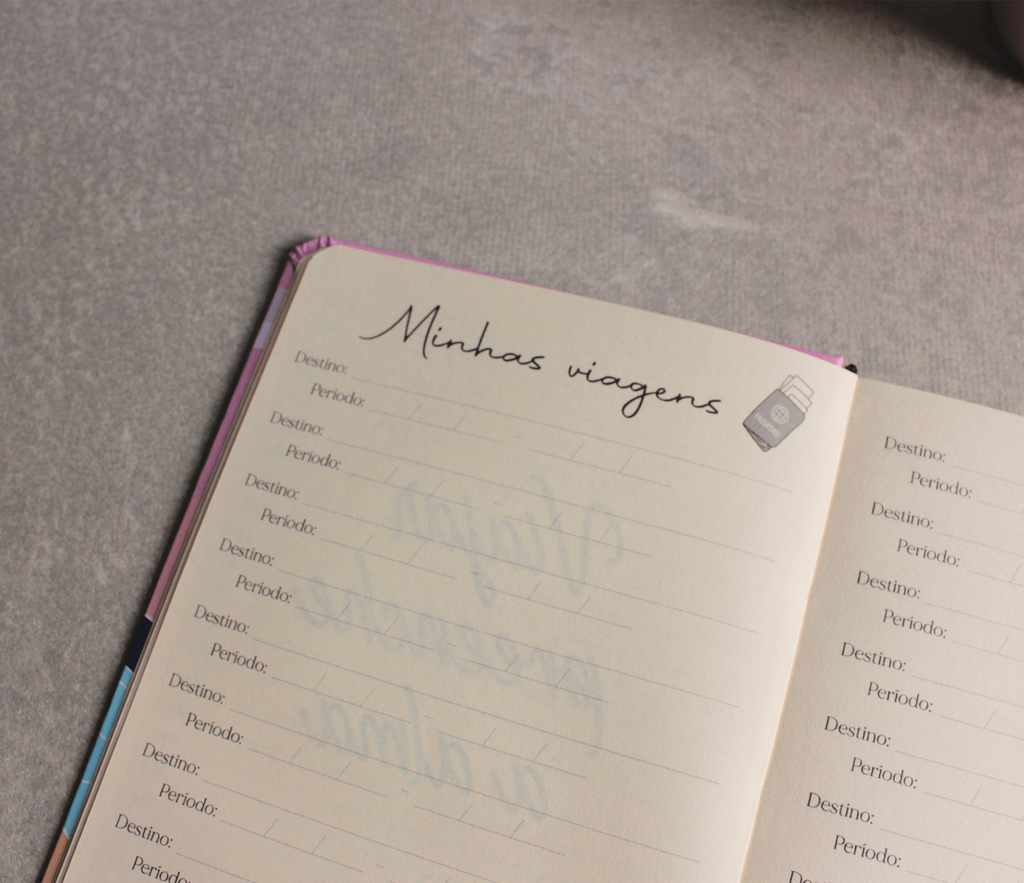 Minhas viagens
Destino:
Período:
Destino:
Período:
Destino:
Período:
Destino:
Período:
Destino:
Período:
Destino:
Período:
Destino:
Período:
Destino:
Período:
Viajar
preenche
a alma
Destino:
Período:
Destino:
Período:
Destino:
Período:
Destino:
Período:
Destino:
Período:
Destino:
Período:
Destino: